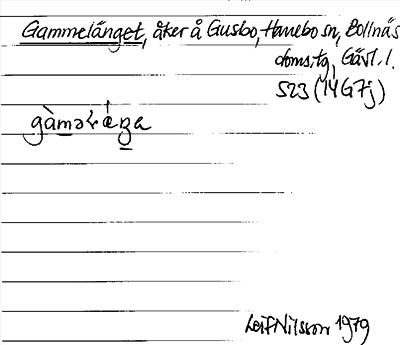 Gammelänget, åker å Gusbo, Hanebo sn, Bollnäs
doms.tg, Gävl. l.
S23 (14G7j)
Leif Nilsson 1979